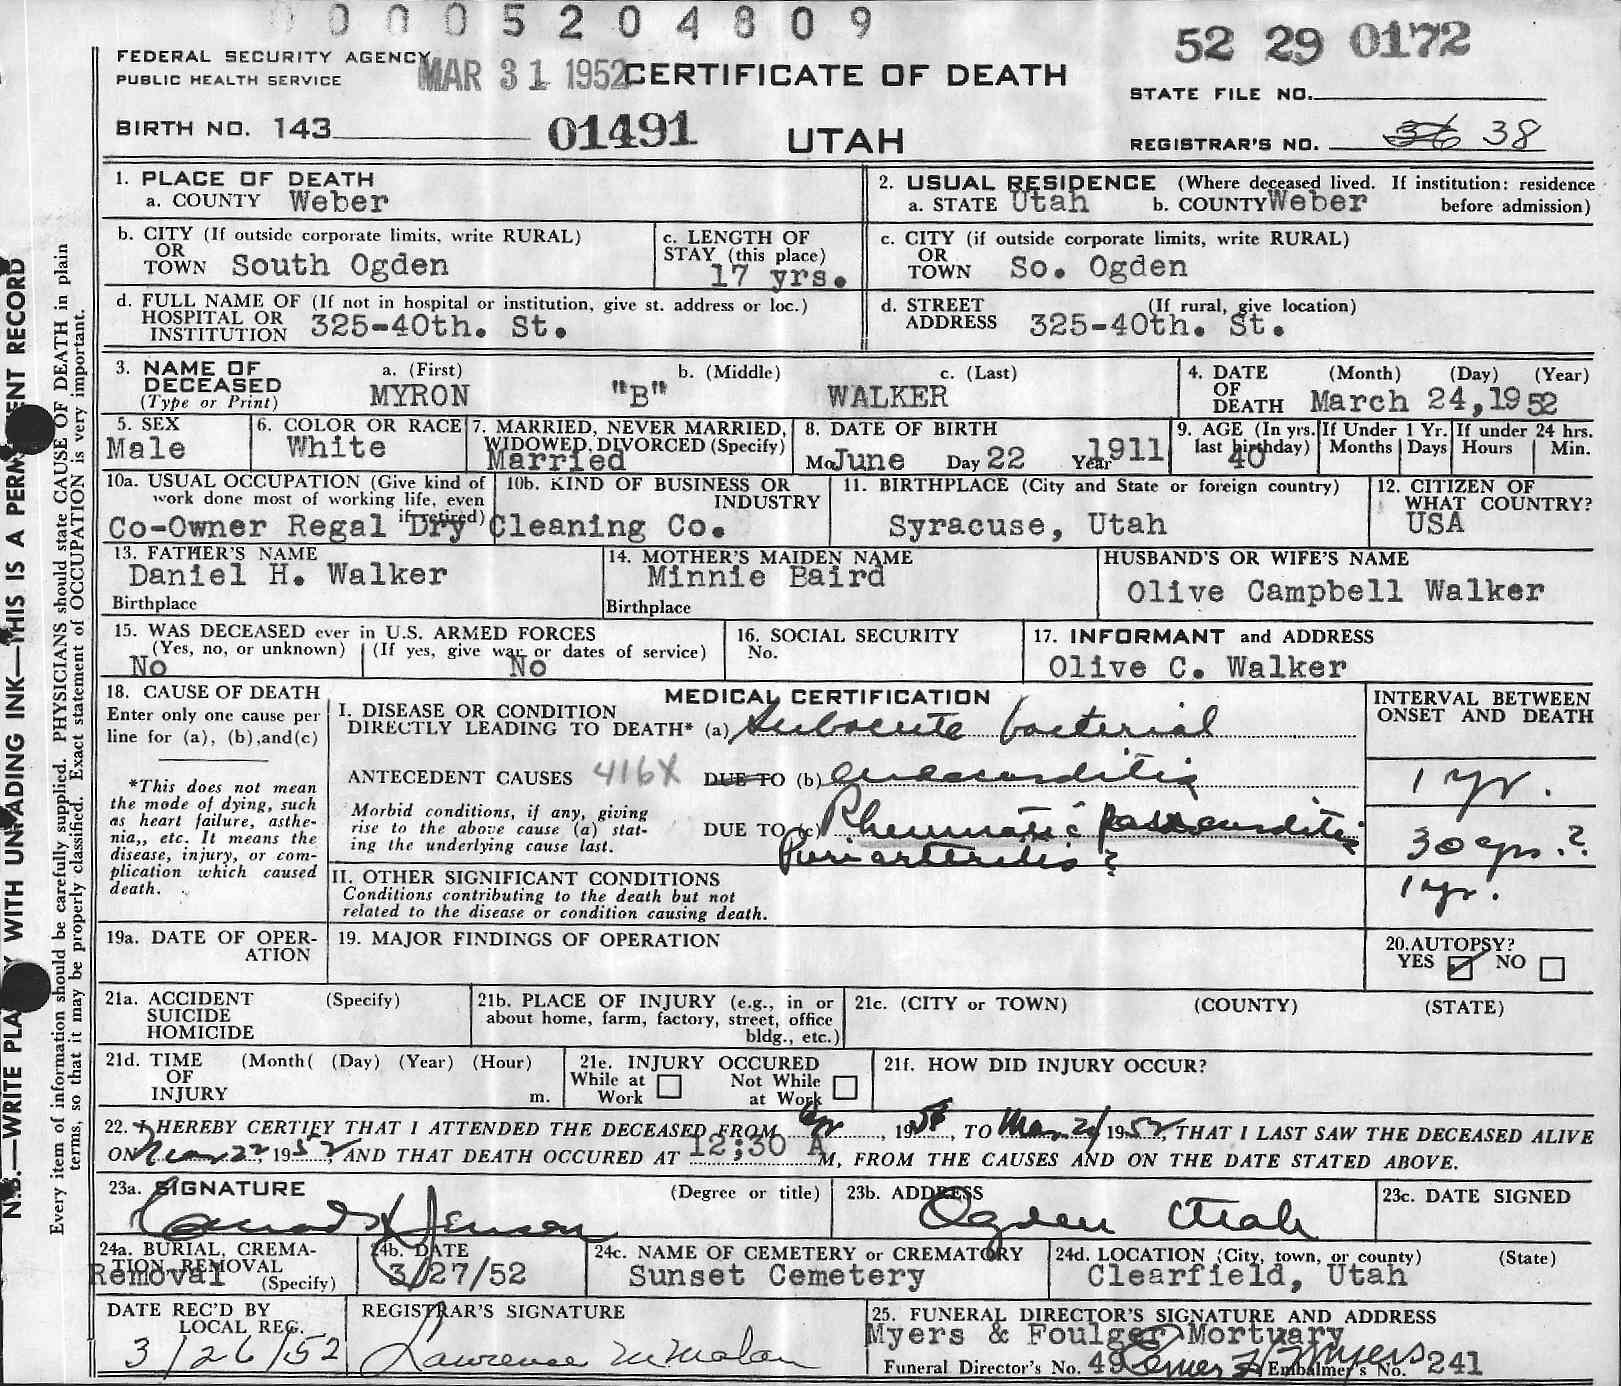 0 0 0 5 2 0 4 8 0 9
52 29 0172
FEDERAL SECURITY AGENCY
PUBLIC HEALTH SERVICE
MAR 31 1952
CERTIFICATE OF DEATH
STATE FILE NO.
BIRTH NO. 143
01491
UTAH
REGISTRAR'S NO. 36 38
1. PLACE OF DEATH
a. COUNTY Weber
2. USUAL RESIDENCE (Where deceased lived. If institution: residence
a. STATE Utah b. COUNTY Weber before admission)
b. CITY (If outside corporate limits, write RURAL)
OR
TOWN South Ogden
c. LENGTH OF
STAY (this place)
17 yrs.
c. CITY (if outside corporate limits, write RURAL)
OR
TOWN So. Ogden
d. FULL NAME OF (If not in hospital or institution, give st. address or loc.)
HOSPITAL OR
INSTITUTION 325-40th. St.
d. STREET (If rural, give location)
ADDRESS 325-40th. St.
3. NAME OF
DECEASED
(Type or Print)
a. (First)
MYRON
b. (Middle)
"B"
c. (Last)
WALKER
4. DATE (Month) (Day) (Year)
OF
DEATH March 24,1952
5. SEX
Male
6. COLOR OR RACE
White
7. MARRIED, NEVER MARRIED,
WIDOWED, DIVORCED (Specify)
Married
8. DATE OF BIRTH
Mo June Day 22 Year 1911
9. AGE (In yrs.
last birthday)
40
If Under 1 Yr.
Months Days
If under 24 hrs.
Hours Min.
10a. USUAL OCCUPATION (Give kind of
work done most of working life, even
if retired)
10b. KIND OF BUSINESS OR
INDUSTRY
Co-Owner Regal Dry Cleaning Co.
11. BIRTHPLACE (City and State or foreign country)
Syracuse, Utah
12. CITIZEN OF
WHAT COUNTRY?
USA
13. FATHER'S NAME
Daniel H. Walker
Birthplace
14. MOTHER'S MAIDEN NAME
Minnie Baird
Birthplace
HUSBAND'S OR WIFE'S NAME
Olive Campbell Walker
15. WAS DECEASED ever in U.S. ARMED FORCES
(Yes, no, or unknown) (If yes, give war or dates of service)
No No
16. SOCIAL SECURITY
No.
17. INFORMANT and ADDRESS
Olive C. Walker
18. CAUSE OF DEATH
Enter only one cause per
line for (a), (b),and(c)
*This does not mean
the mode of dying, such
as heart failure, asthe-
nia,, etc. It means the
disease, injury, or com-
plication which caused
death.
MEDICAL CERTIFICATION
I. DISEASE OR CONDITION
DIRECTLY LEADING TO DEATH* (a) Subacute bacterial
ANTECEDENT CAUSES 416X DUE TO (b) endocarditis
Morbid conditions, if any, giving
rise to the above cause (a) stat-
ing the underlying cause last.
DUE TO (c) Rheumatic
Periarteritis?
II. OTHER SIGNIFICANT CONDITIONS
Conditions contributing to the death but not
related to the disease or condition causing death.
INTERVAL BETWEEN
ONSET AND DEATH
1 yr.
30 yrs.?
1 yr.
19a. DATE OF OPER-
ATION
19. MAJOR FINDINGS OF OPERATION
20. AUTOPSY?
YES NO
21a. ACCIDENT (Specify)
SUICIDE
HOMICIDE
21b. PLACE OF INJURY (e.g., in or
about home, farm, factory, street, office
bldg., etc.)
21c. (CITY or TOWN) (COUNTY) (STATE)
21d. TIME (Month( (Day) (Year) (Hour)
OF
INJURY m.
21e. INJURY OCCURED
While at Not While
Work at Work
21f. HOW DID INJURY OCCUR?
22. I HEREBY CERTIFY THAT I ATTENDED THE DECEASED FROM , 19 , TO Mar. 1952, THAT I LAST SAW THE DECEASED ALIVE
ON Mar. 22, 1952, AND THAT DEATH OCCURED AT 12;30 A M, FROM THE CAUSES AND ON THE DATE STATED ABOVE.
23a. SIGNATURE (Degree or title)
Conrad H Jenson
23b. ADDRESS
Ogden Utah
23c. DATE SIGNED
24a. BURIAL, CREMA-
TION, REMOVAL
(Specify)
Removal
24b. DATE
3/27/52
24c. NAME OF CEMETERY or CREMATORY
Sunset Cemetery
24d. LOCATION (City, town, or county) (State)
Clearfield, Utah
DATE REC'D BY
LOCAL REG.
3/26/52
REGISTRAR'S SIGNATURE
Lawrence M Malan
25. FUNERAL DIRECTOR'S SIGNATURE AND ADDRESS
Myers & Foulger Mortuary
Funeral Director's No. 49 Myers Embalmer's No. 241
N.B.—WRITE PLAINLY WITH UNFADING INK—THIS IS A PERMANENT RECORD
Every item of information should be carefully supplied. PHYSICIANS should state CAUSE OF DEATH in plain
terms, so that it may be properly classified. Exact statement of OCCUPATION is very important.